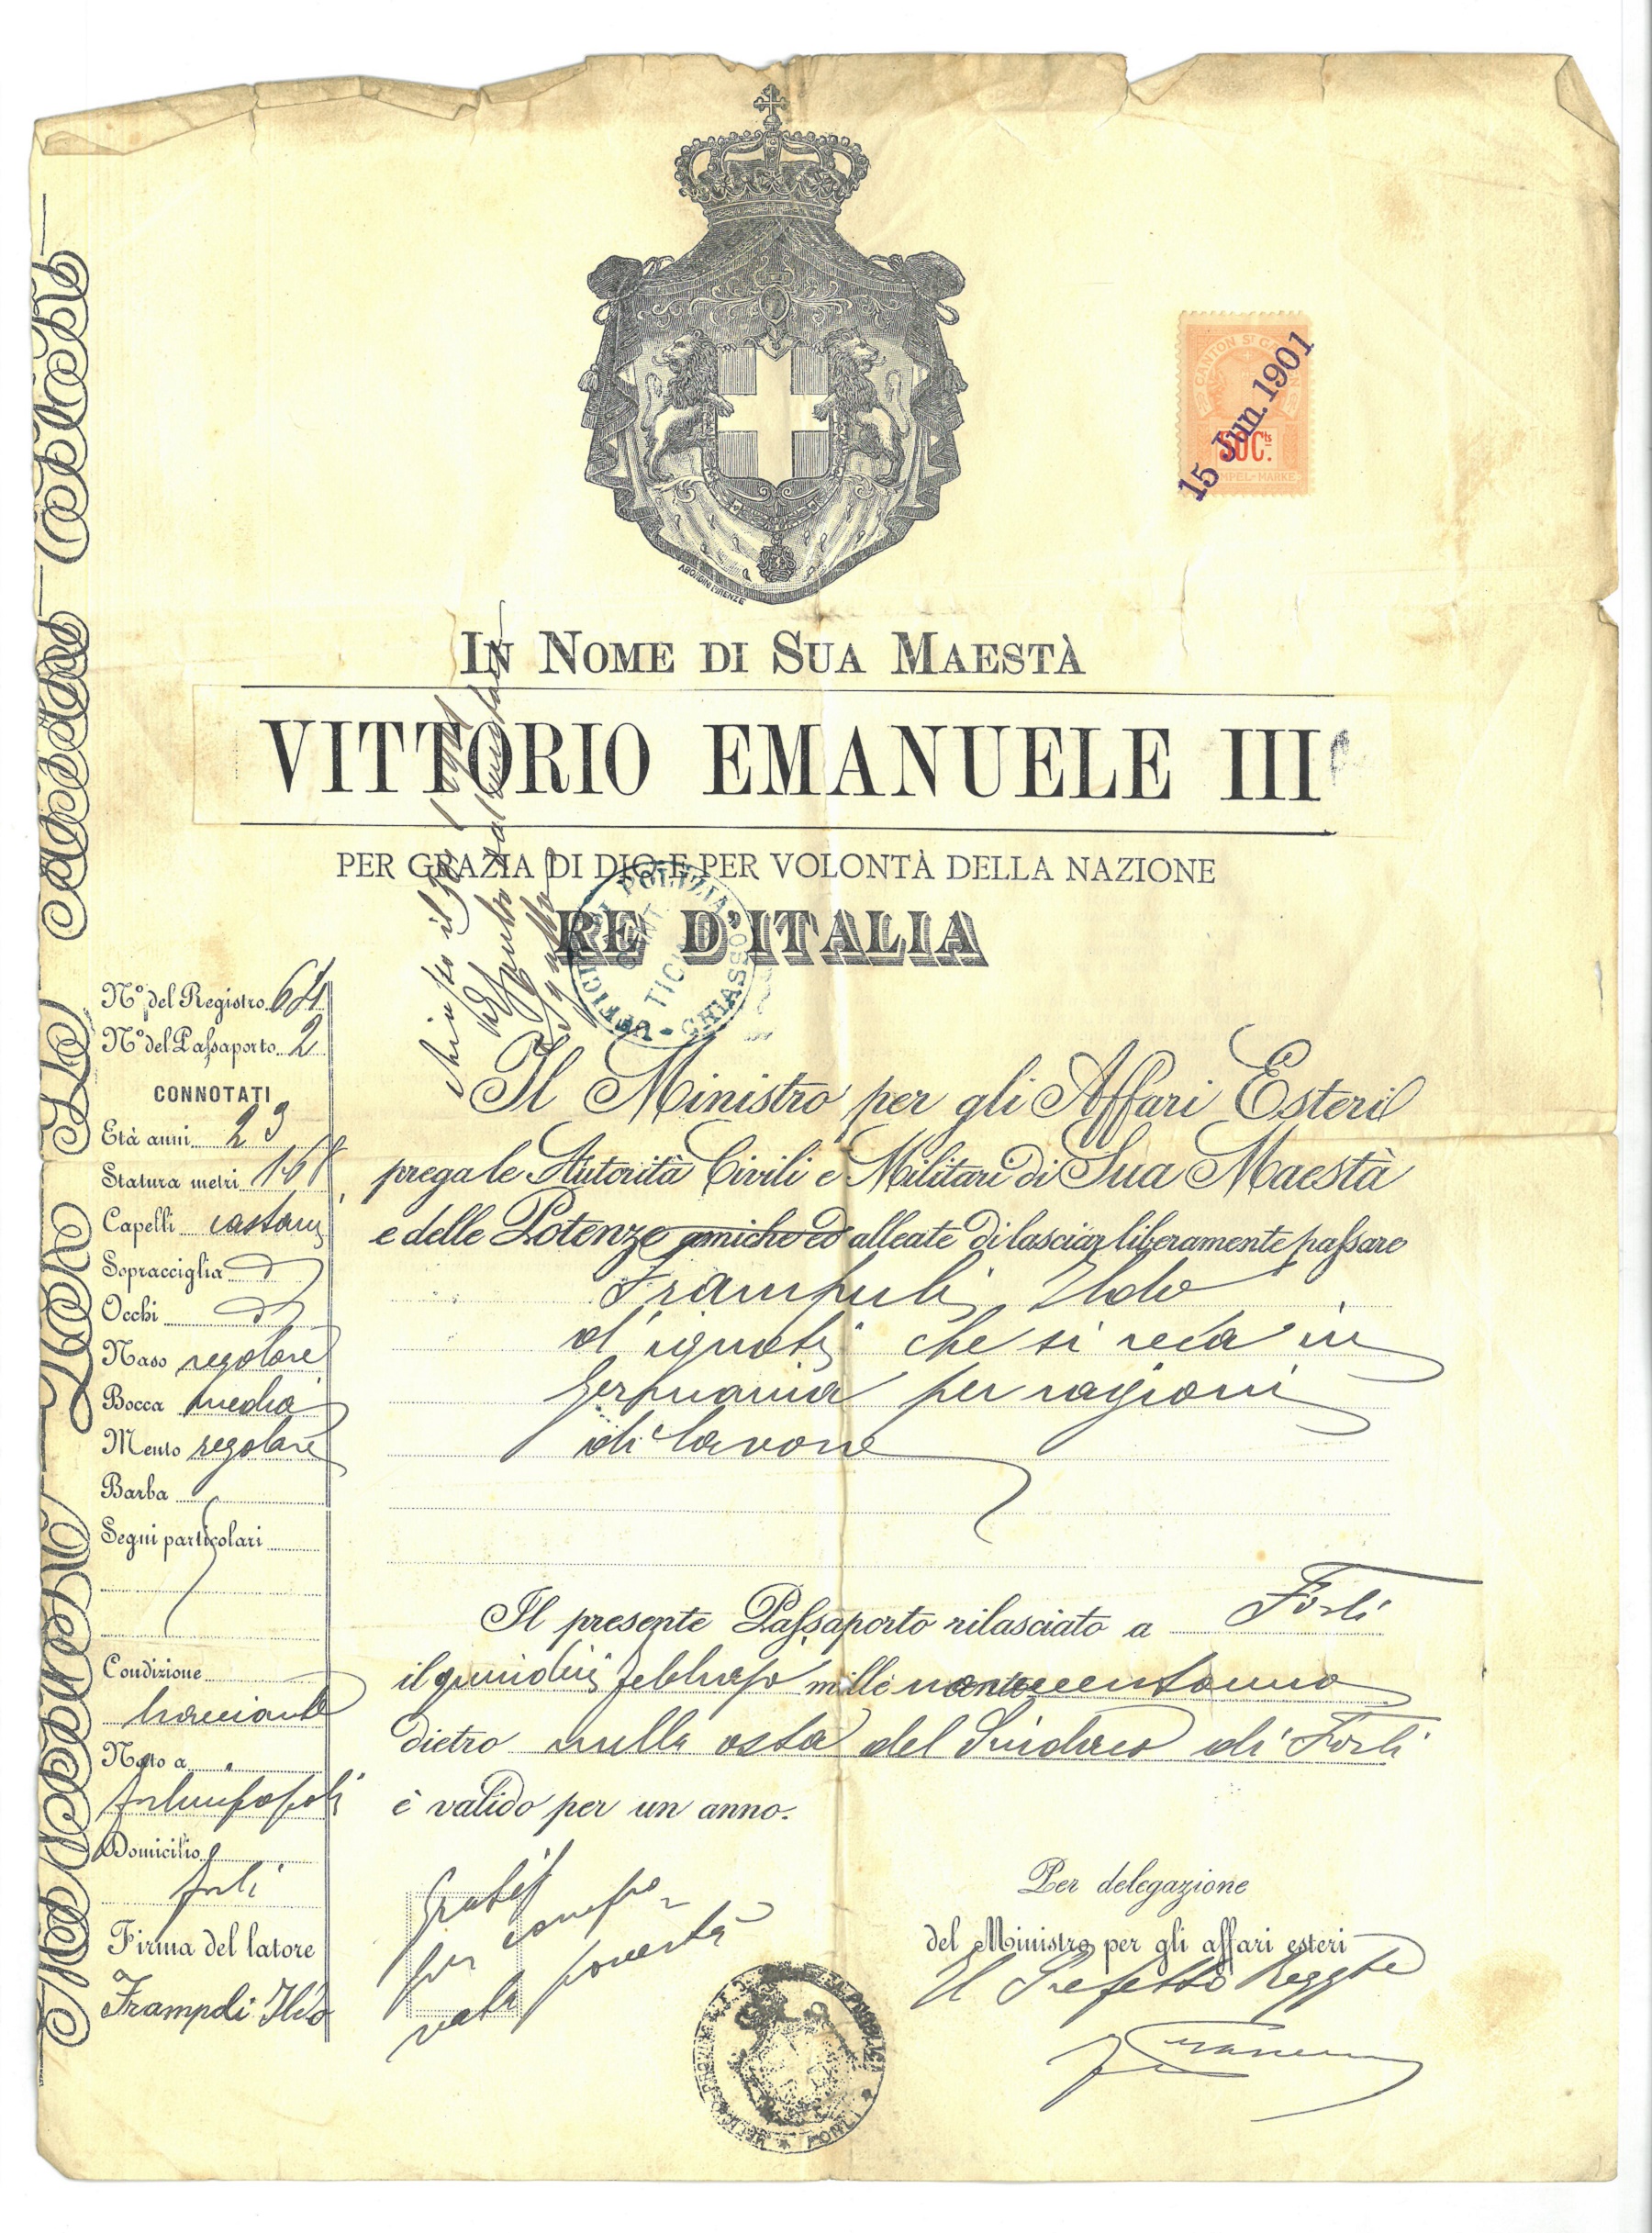 CANTON ST. GALLEN
50 Cts.
STEMPEL-MARKE
15 Jun. 1901
IN NOME DI SUA MAESTÀ
VITTORIO EMANUELE III
PER GRAZIA DI DIO E PER VOLONTÀ DELLA NAZIONE
RE D'ITALIA
UFFICIO DI POLIZIA CHIASSO
CANT. TICINO
N.° del Registro 64
N.° del Passaporto 2
CONNOTATI
Età anni 23
Statura metri 1.68
Capelli castani
Sopracciglia
Occhi
Naso regolare
Bocca media
Mento regolare
Barba
Segni particolari
Condizione
bracciante
Nato a
Forlimpopoli
Domicilio
Forlì
Firma del latore
Frampoli Ildo
Il Ministro per gli Affari Esteri
prega le Autorità Civili e Militari di Sua Maestà
e delle Potenze amiche ed alleate di lasciar liberamente passare
Frampuli Ildo
d'ignoti che si reca in
Germania per ragioni
di lavoro
Il presente Passaporto rilasciato a Forlì
il quindici febbrajo mille novecentouno
dietro nulla osta del Sindaco di Forlì
è valido per un anno.
Gratis
per compro-
vata povertà
Per delegazione
del Ministro per gli affari esteri
Il Prefetto Reggte
FORLI